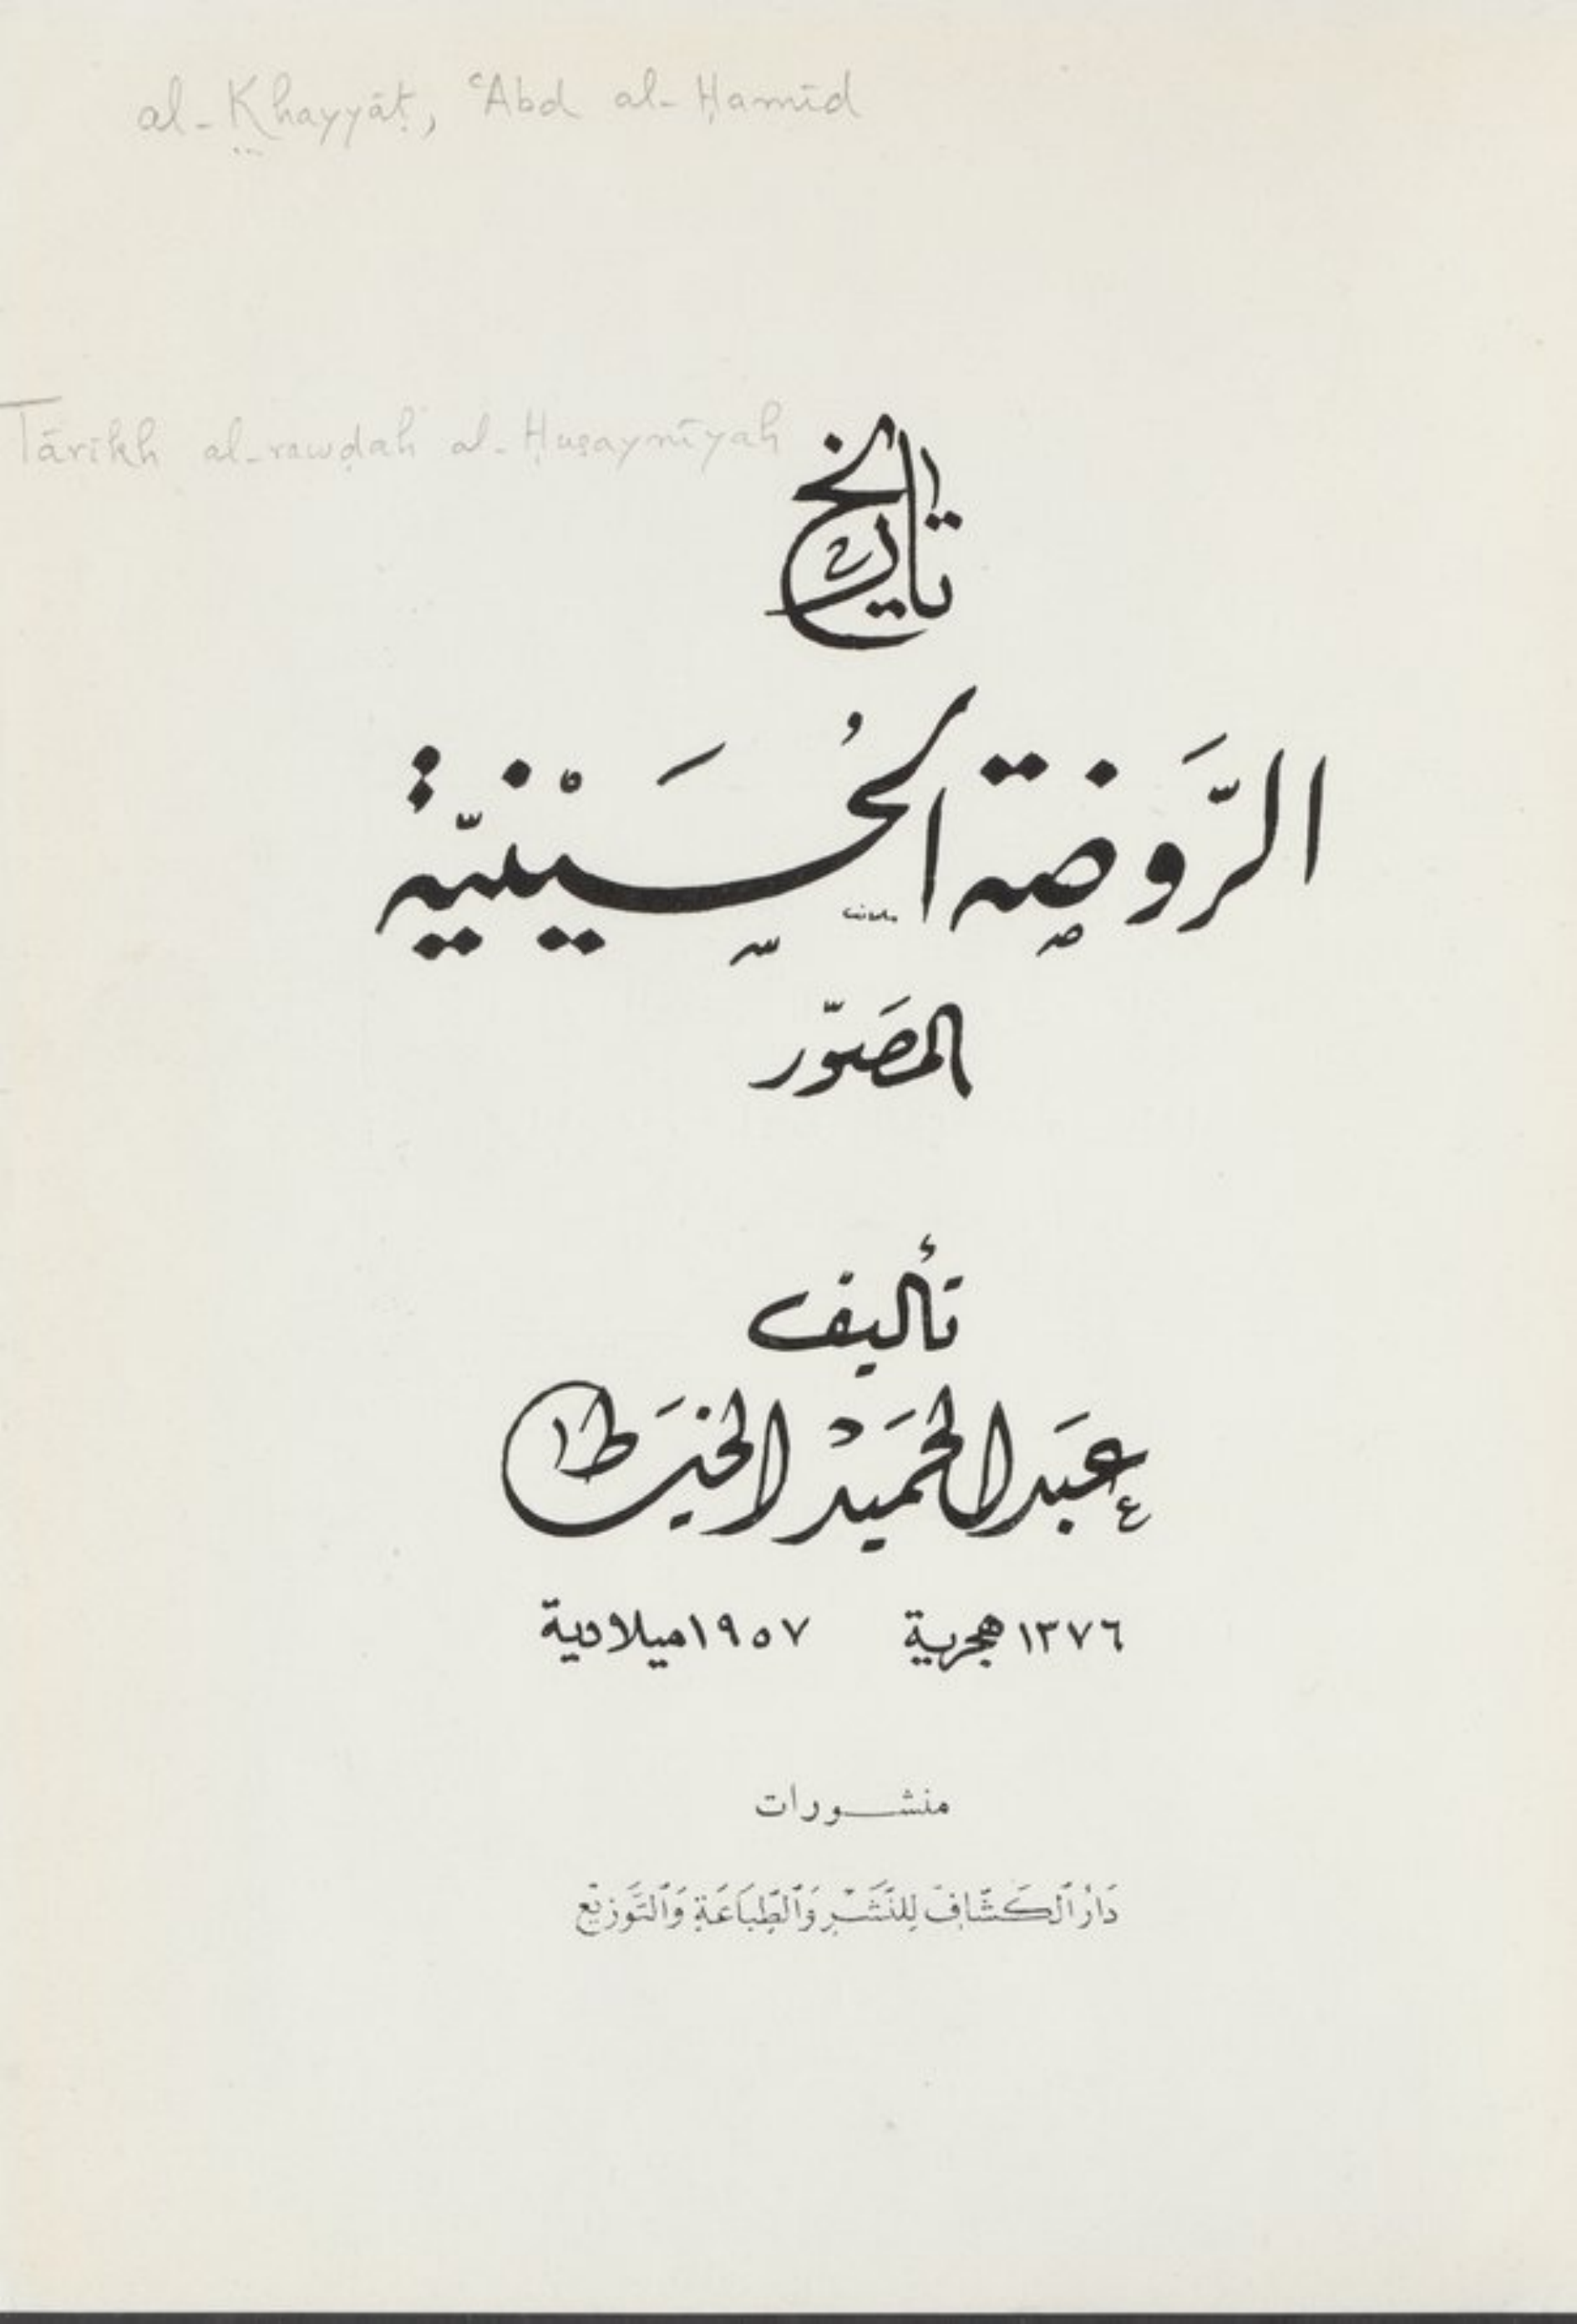 al-Khayyāṭ, ʿAbd al-Ḥamīd
Tārīkh al-rawḍah al-Ḥusaynīyah
تاريخ
الرَّوضة الحُسَيْنيّة
المصَوّر
تأليف
عبَد الحمَيد الخيَاط
١٣٧٦ هجرية ١٩٥٧ ميلادية
منشورات
دَارُ ٱلكَشَّافْ لِلنَّشْرِ وَٱلطِّبَاعَةِ وَٱلتَّوَزيْع